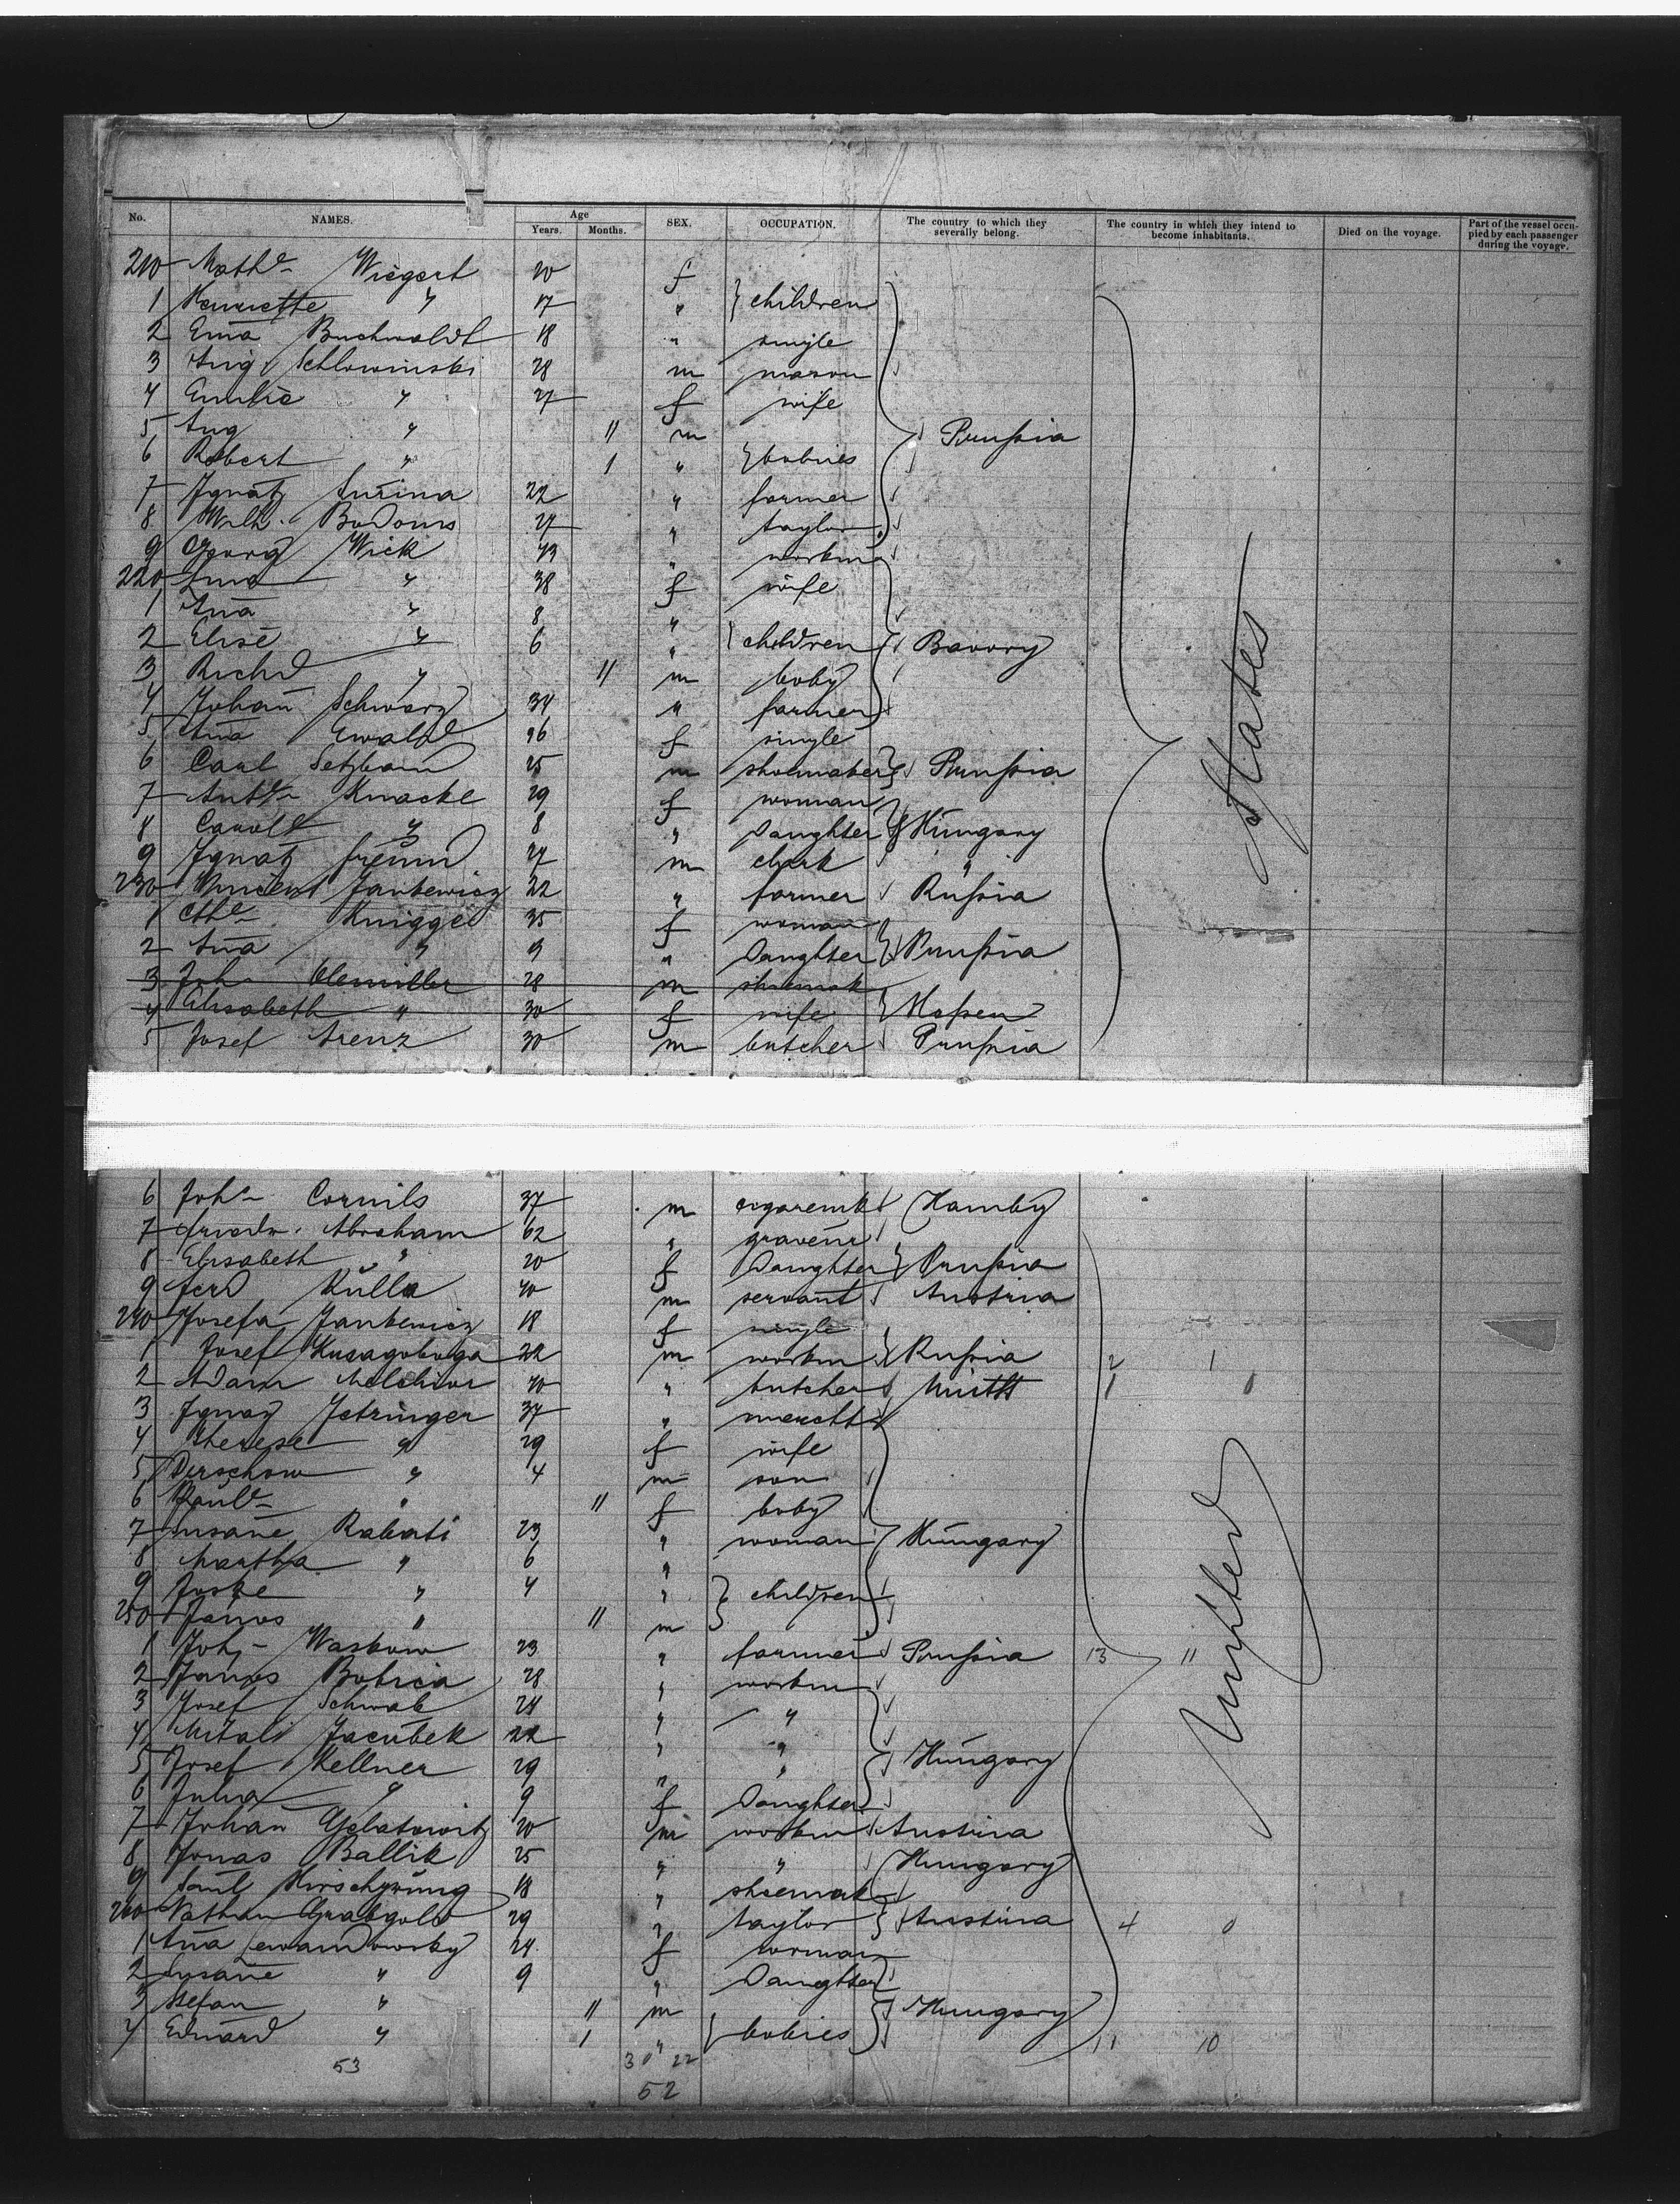 No. NAMES. Age Years. Months. SEX. OCCUPATION. The country to which they severally belong. The country in which they intend to become inhabitants. Died on the voyage. Part of the vessel occupied by each passenger during the voyage.
210 Mathe Wiegert 20 f
1 Henriette " 17 " } children
2 Em̄a Buchwaldt 18 " single
3 Aug. Schlowinski 28 m mason
4 Emilie " 27 f wife
5 Aug " 11 m
6 Robert " 1 " } babies Prussia
7 Ignatz 22 " farmer
8 Wilh. 27 " taylor
9 Georg Wick 43 " workm
220 " 38 f wife
1 An̄a " 8 "
2 Elise " 6 " children Bavary
3 Richd " 11 m baby
4 Johan̄ Schwarz 34 " farmer
5 An̄a Ewald 26 f single
6 Carl 25 m shoemaker Prussia
7 Knacke 29 f woman
8 " 8 " Daughter Hungary
9 Ignatz Freund 27 m clerk "
230 Vincent Jankewicz 22 " farmer Russia
1 Knigge 35 f woman
2 An̄a " 9 " Daughter Prussia
3 Joh 28 m shoemak
4 Elisabeth " 30 f wife Hessen
5 Josef Arenz 30 m butcher Prussia
States
6 Joh Cornils 37 m cigaremk Hambg
7 Friedr. Abraham 62 " graveur
8 Elisabeth " 20 f Daughter Prussia
9 Ferd Kulla 40 m servant Austria
240 Josefa Jankewicz 18 f single
1 Josef 22 m workm Russia 2 1
2 Adam Melchior 40 " butcher 1 0
3 Ignaz 37 " mercht
4 Therese " 29 f wife
5 " 4 m son
6 " 11 f baby
7 Susan̄e Rabati 23 " woman Hungary
8 Martha " 6 "
9 " 4 " } children
250 Janos " 11 m
1 Joh Waskow 23 " farmer Prussia 13 11
2 Janos 28 " workm
3 Josef Schwab 24 " "
4 Jacubek 22 " "
5 Josef Kellner 29 " " Hungary
6 Julia " 9 f Daughter
7 Johan̄ 20 m workm Austria
8 Jonas Ballik 25 " " Hungary
9 18 " shoemak
260 Nathan Grabgold 29 " taylor Austria 4 0
1 An̄a Lewandowsky 24 f woman
2 Susan̄e " 9 " Daughter
3 Stefan " 11 m Hungary
4 Eduard " 1 " } babies 11 10
United
53 30 22
52